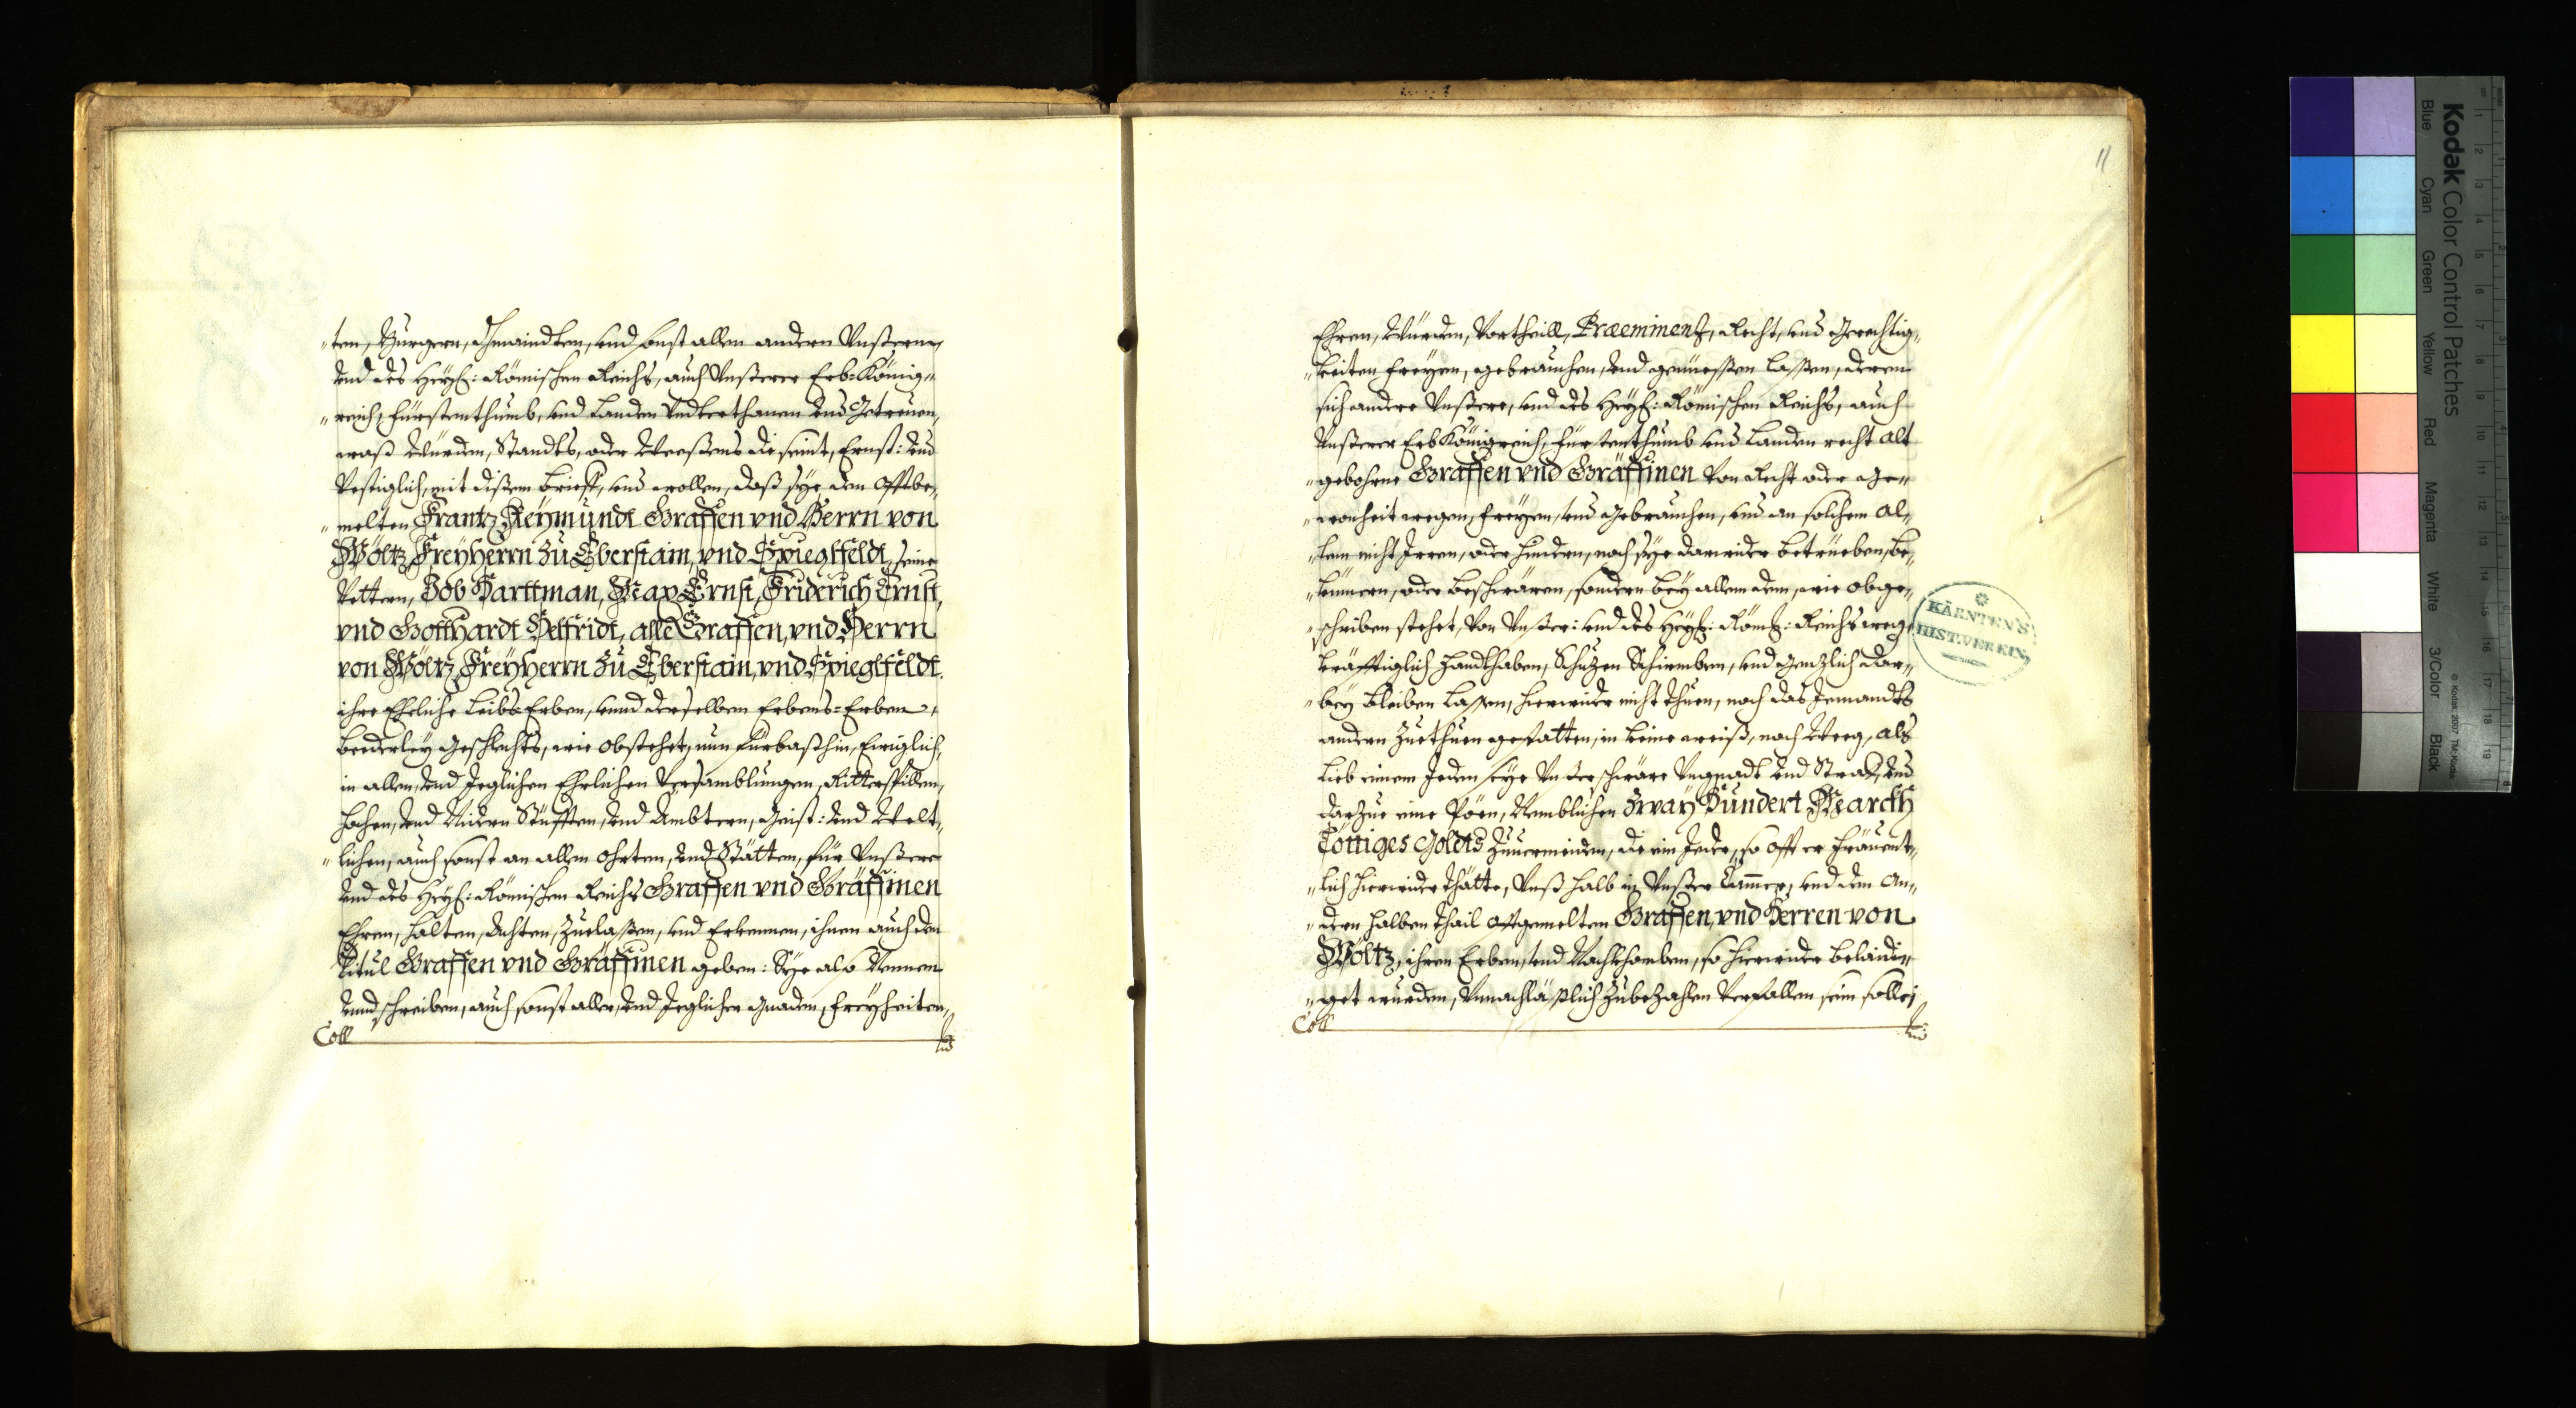 "ten, Burgern, Gmaindten, vnd sonst allen andern Vnßern,
vnd des Heyl: Römischen Reichs, auch Vnßerer Erb-König-"
"reich, Fürstenthumb, vnd Landen Vndterthanen vnd Getreuen,
waß Würden, Standts, oder Weeßens die seint, Ernst: vnd
Vestiglich, mit dißem brieff, vnd wollen, daß sye den offtbe-,
"melten Frantz Reymundt Graffen vnd Herrn von
Wöltz, Freyherrn zu Eberstain, vnd Spieglfeldt, seine
Vettern, Job Harttman, Max Ernst, Friderich Ernst,
vnd Gotthardt Helfridt, alle Graffen, vnd Herrn
von Wöltz, Freyherrn zu Eberstain, vnd Spieglfeldt.
ihre Eheliche Leibs Erben, vnnd derselben Erbens-Erben,
beederley geschlechts, wie obstehet, nun fürbaßhin, Ewiglich,
in allen, vnd Jeglichen Ehrlichen Versamblungen, Ritterspillen,
hochen, vnd Nidern Stüfften, vnd Ambtern, Geist: vnd Welt-,
"lichen, auch sonst an allen ohrten, vnd Stätten, für Vnßere
vnd des Heyl: Römischen Reichs Graffen vnd Gräffinen
Ehren, halten, Achten, Zuelaßen, vnd Erkennen, ihnen auch den
Titul Graffen vnd Gräffinen geben: Sye also Nennen
vnnd schreiben, auch sonst aller, vnd Jeglicher Gnaden, Freyheiten,
Coll
Ehren, Würden, Vortheill, Praeeminentz, Recht, vnd Gerechtig-"
"keiten freyen, gebrauchen, vnd genüessen lassen, deren
sich andere Vnßere, vnd des Heyl: Römischen Reichs, auch
Vnßerer Erb Königreich, Fürstenthumb vnd Landen recht alt
"gebohrne Graffen vnd Gräffinen von Recht oder Ge-"
"wonheit wegen, freyen, vnd gebrauchen, vnd an solchem al-,
"lem nicht Irren, oder hindern, noch sye darwider betrüeben, be-,
"kümern, oder beschwären, sondern bey allem dem, wie obge-,
"schriben stehet, von Vnßer: vnd des Heyl: Röm: Reichs wegen
kräfftiglich handthaben, Schuzen Schirmben, vnd genzlich dar-"
"bey bleiben lassen, hierwider nicht thuen, noch das Jemandts
andern Zuethuen gestatten, in keine weiß, noch Weeg, als
lieb einem Jeden seye Vnßer schwäre Vngnadt vnd Straff, vnd
darzue eine Pöen, Nemblichen Zway Hundert March
Löttiges Goldts Zuuermeiden, die ein Jeder, so offt er fräuent-,
"lich hierwider thätte, Vnß halb in Vnßer Cammer, vnd den an-,
"dern halben thail offtgemelten Graffen, vnd Herren von
Wöltz, ihren Erben, vnd Nachkhomben, so hierwider belaidi-"
"get wurden, Vnnachläßlich Zubezahlen Verfallen sein solle;
Coll
11
KÄRNTEN'S
HIST.VEREIN
Kodak Color Control Patches
Blue Cyan Green Yellow Red Magenta White 3/Color Black
© Kodak, 2007 TM: Kodak